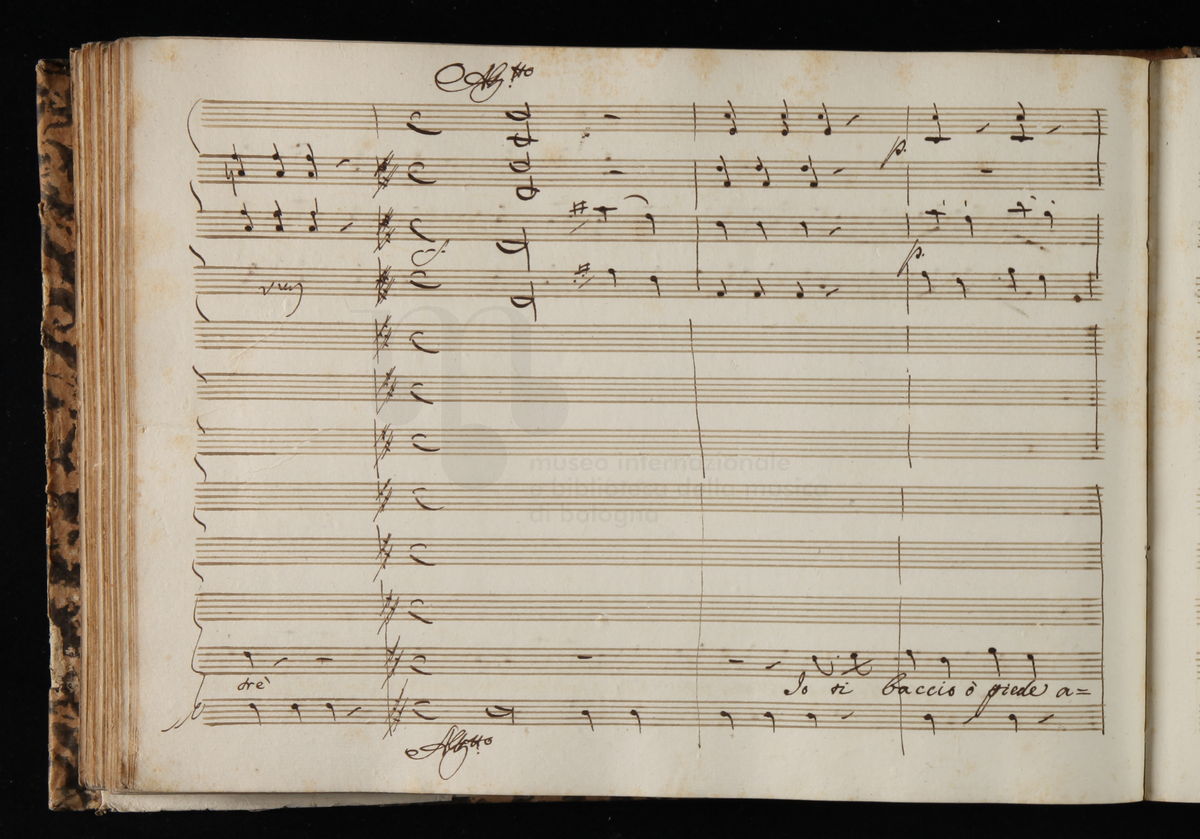 All.tto
p.
p.
museo internazionale
e biblioteca della musica
di bologna
drè
Io si baccio ò piede a=
All.tto